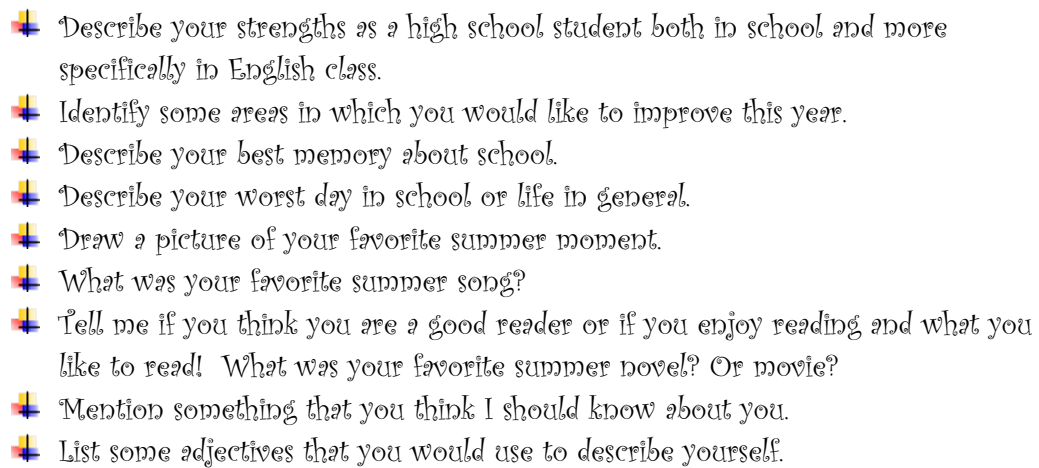 Describe your strengths as a high school student both in school and more
specifically in English class.
Identify some areas in which you would like to improve this year.
Describe your best memory about school.
Describe your worst day in school or life in general.
Draw a picture of your favorite summer moment.
What was your favorite summer song?
Tell me if you think you are a good reader or if you enjoy reading and what you
like to read!  What was your favorite summer novel? Or movie?
Mention something that you think I should know about you.
List some adjectives that you would use to describe yourself.